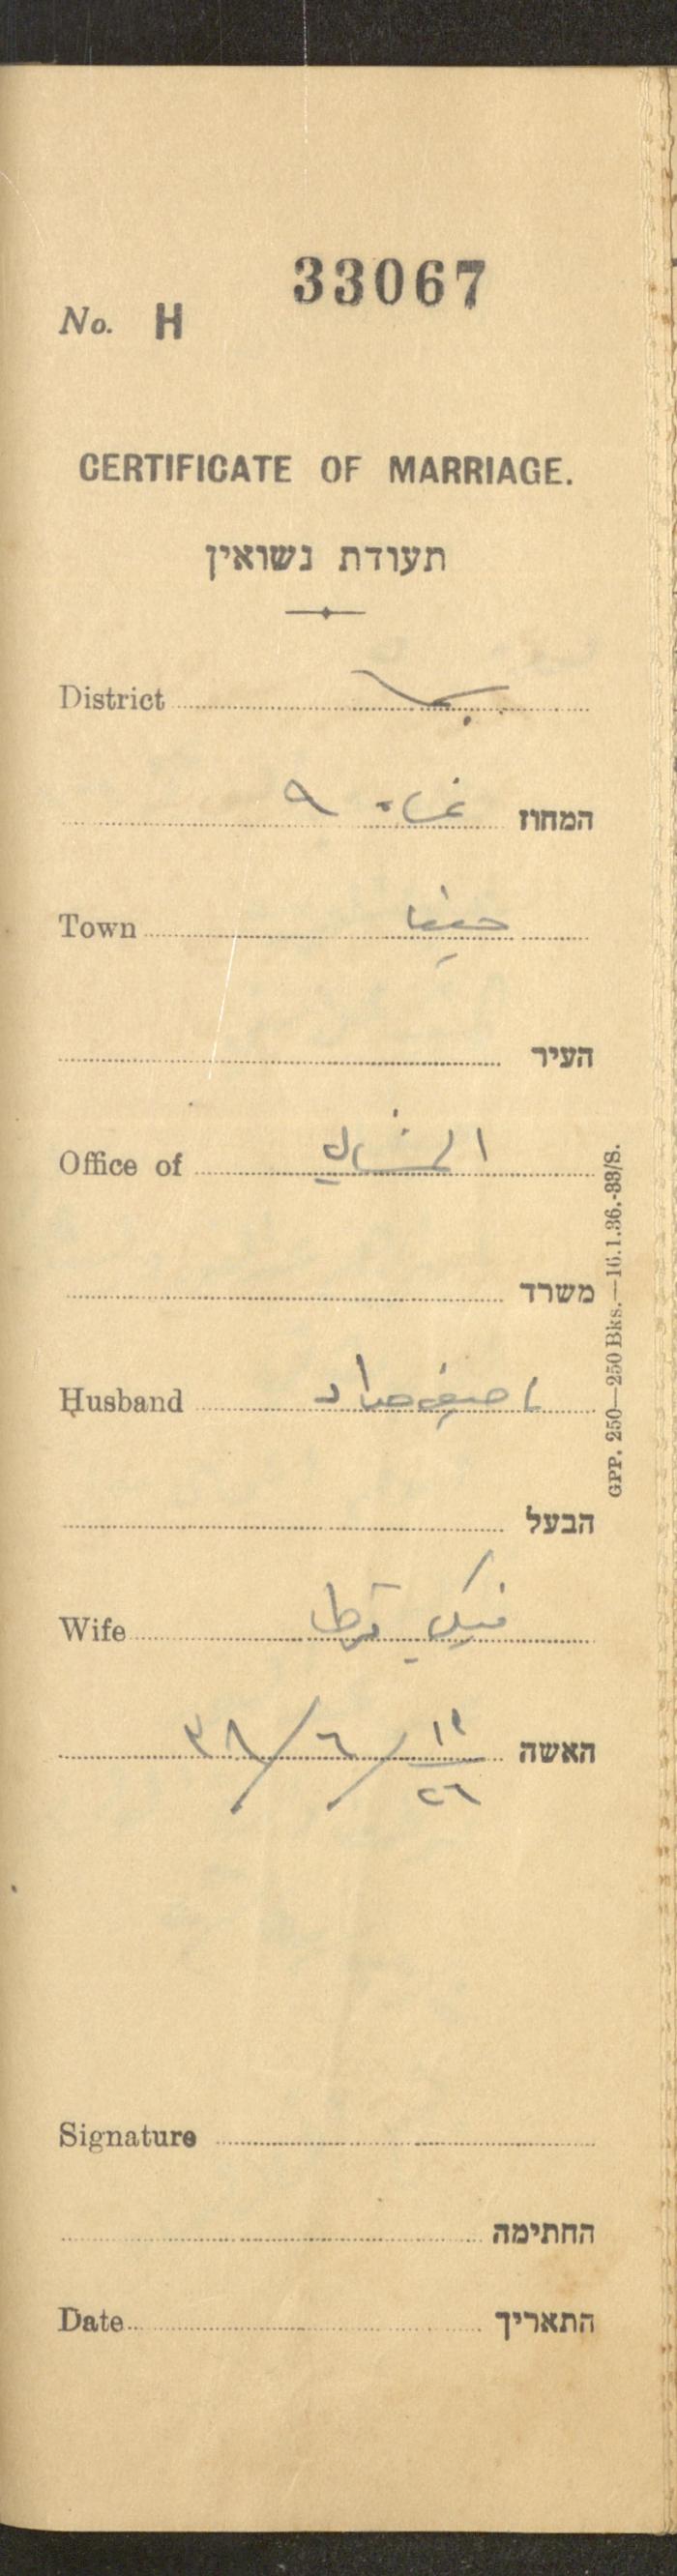 33067
No. H
CERTIFICATE OF MARRIAGE.
תעודת נשואין
District
המחוז
Town حيفا
העיר
Office of الشمالي
משרד
Husband حداد
הבעל
Wife
האשה ١١/٢٦ / ٦ / ٣٨
Signature
החתימה
Date התאריך
GPP. 250—250 Bks.—16.1.36.-33/S.